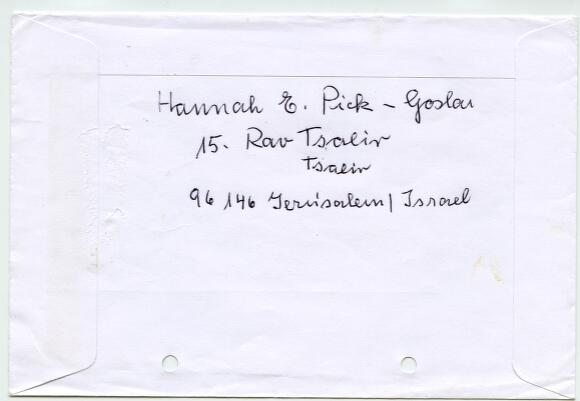 Hannah E. Pick - Goslar
15. Rav Tsalir
Tsair
96 146 Jerusalem / Israel